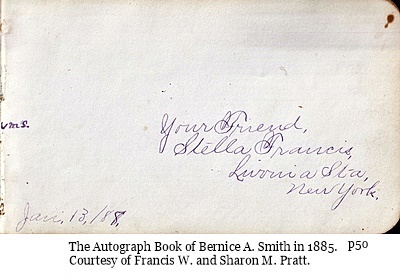 vms.
Your Friend,
Stella Francis,
Livonia Sta,
New York.
Jan. 13, /88,
The Autograph Book of Bernice A. Smith in 1885. P50
Courtesy of Francis W. and Sharon M. Pratt.